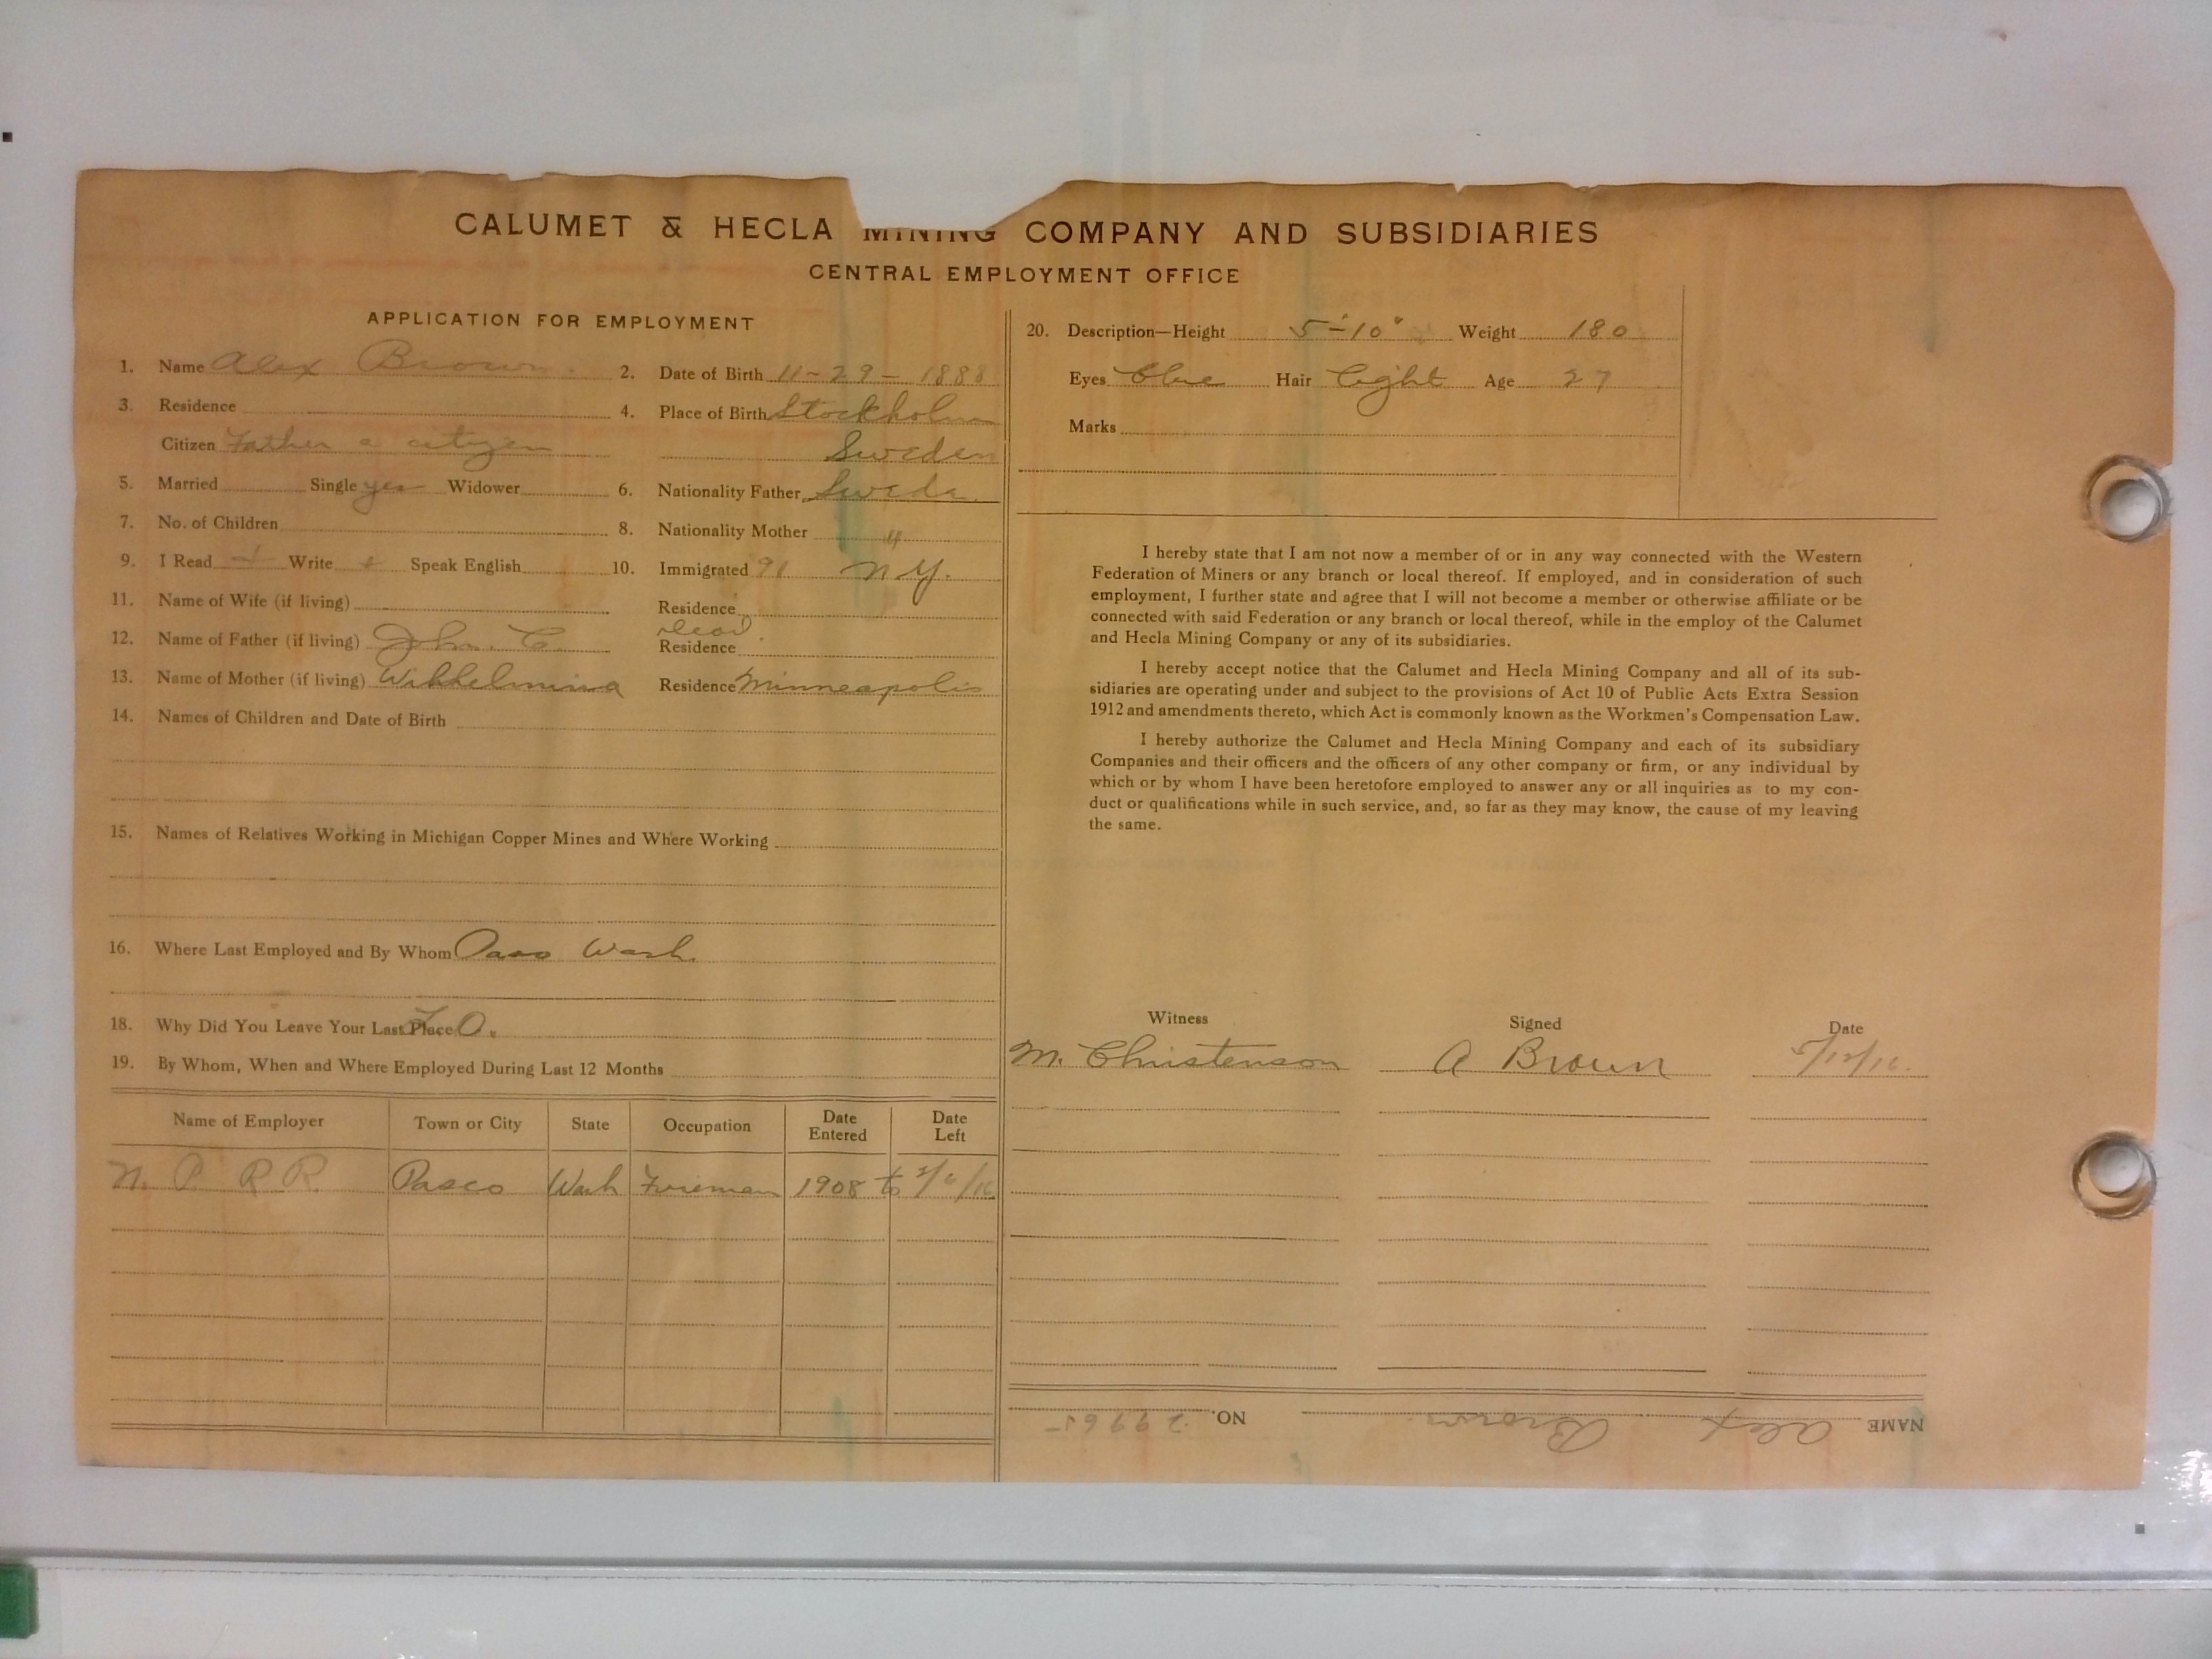 CALUMET & HECLA MINING COMPANY AND SUBSIDIARIES
CENTRAL EMPLOYMENT OFFICE
APPLICATION FOR EMPLOYMENT
1. Name Alex Brown 2. Date of Birth 11-29-1888
3. Residence 4. Place of Birth Stockholm
Citizen Father a citizen Sweden
5. Married Single yes Widower 6. Nationality Father Swede
7. No. of Children 8. Nationality Mother "
9. I Read Write Speak English 10. Immigrated 91 N.Y.
11. Name of Wife (if living) Residence
12. Name of Father (if living) John C. dead. Residence
13. Name of Mother (if living) Wilhelmina Residence Minneapolis
14. Names of Children and Date of Birth
15. Names of Relatives Working in Michigan Copper Mines and Where Working
16. Where Last Employed and By Whom Wash.
18. Why Did You Leave Your Last Place
19. By Whom, When and Where Employed During Last 12 Months
Name of Employer Town or City State Occupation Date Entered Date Left
N. P. R.R. Pasco Wash Fireman 1908 to /16
20. Description—Height 5'-10" Weight 180
Eyes blue Hair light Age 27
Marks
I hereby state that I am not now a member of or in any way connected with the Western
Federation of Miners or any branch or local thereof. If employed, and in consideration of such
employment, I further state and agree that I will not become a member or otherwise affiliate or be
connected with said Federation or any branch or local thereof, while in the employ of the Calumet
and Hecla Mining Company or any of its subsidiaries.
I hereby accept notice that the Calumet and Hecla Mining Company and all of its sub-
sidiaries are operating under and subject to the provisions of Act 10 of Public Acts Extra Session
1912 and amendments thereto, which Act is commonly known as the Workmen's Compensation Law.
I hereby authorize the Calumet and Hecla Mining Company and each of its subsidiary
Companies and their officers and the officers of any other company or firm, or any individual by
which or by whom I have been heretofore employed to answer any or all inquiries as to my con-
duct or qualifications while in such service, and, so far as they may know, the cause of my leaving
the same.
Witness Signed Date
M. Christenson A Brown 5/12/16.
NAME Alex Brown NO. 29965